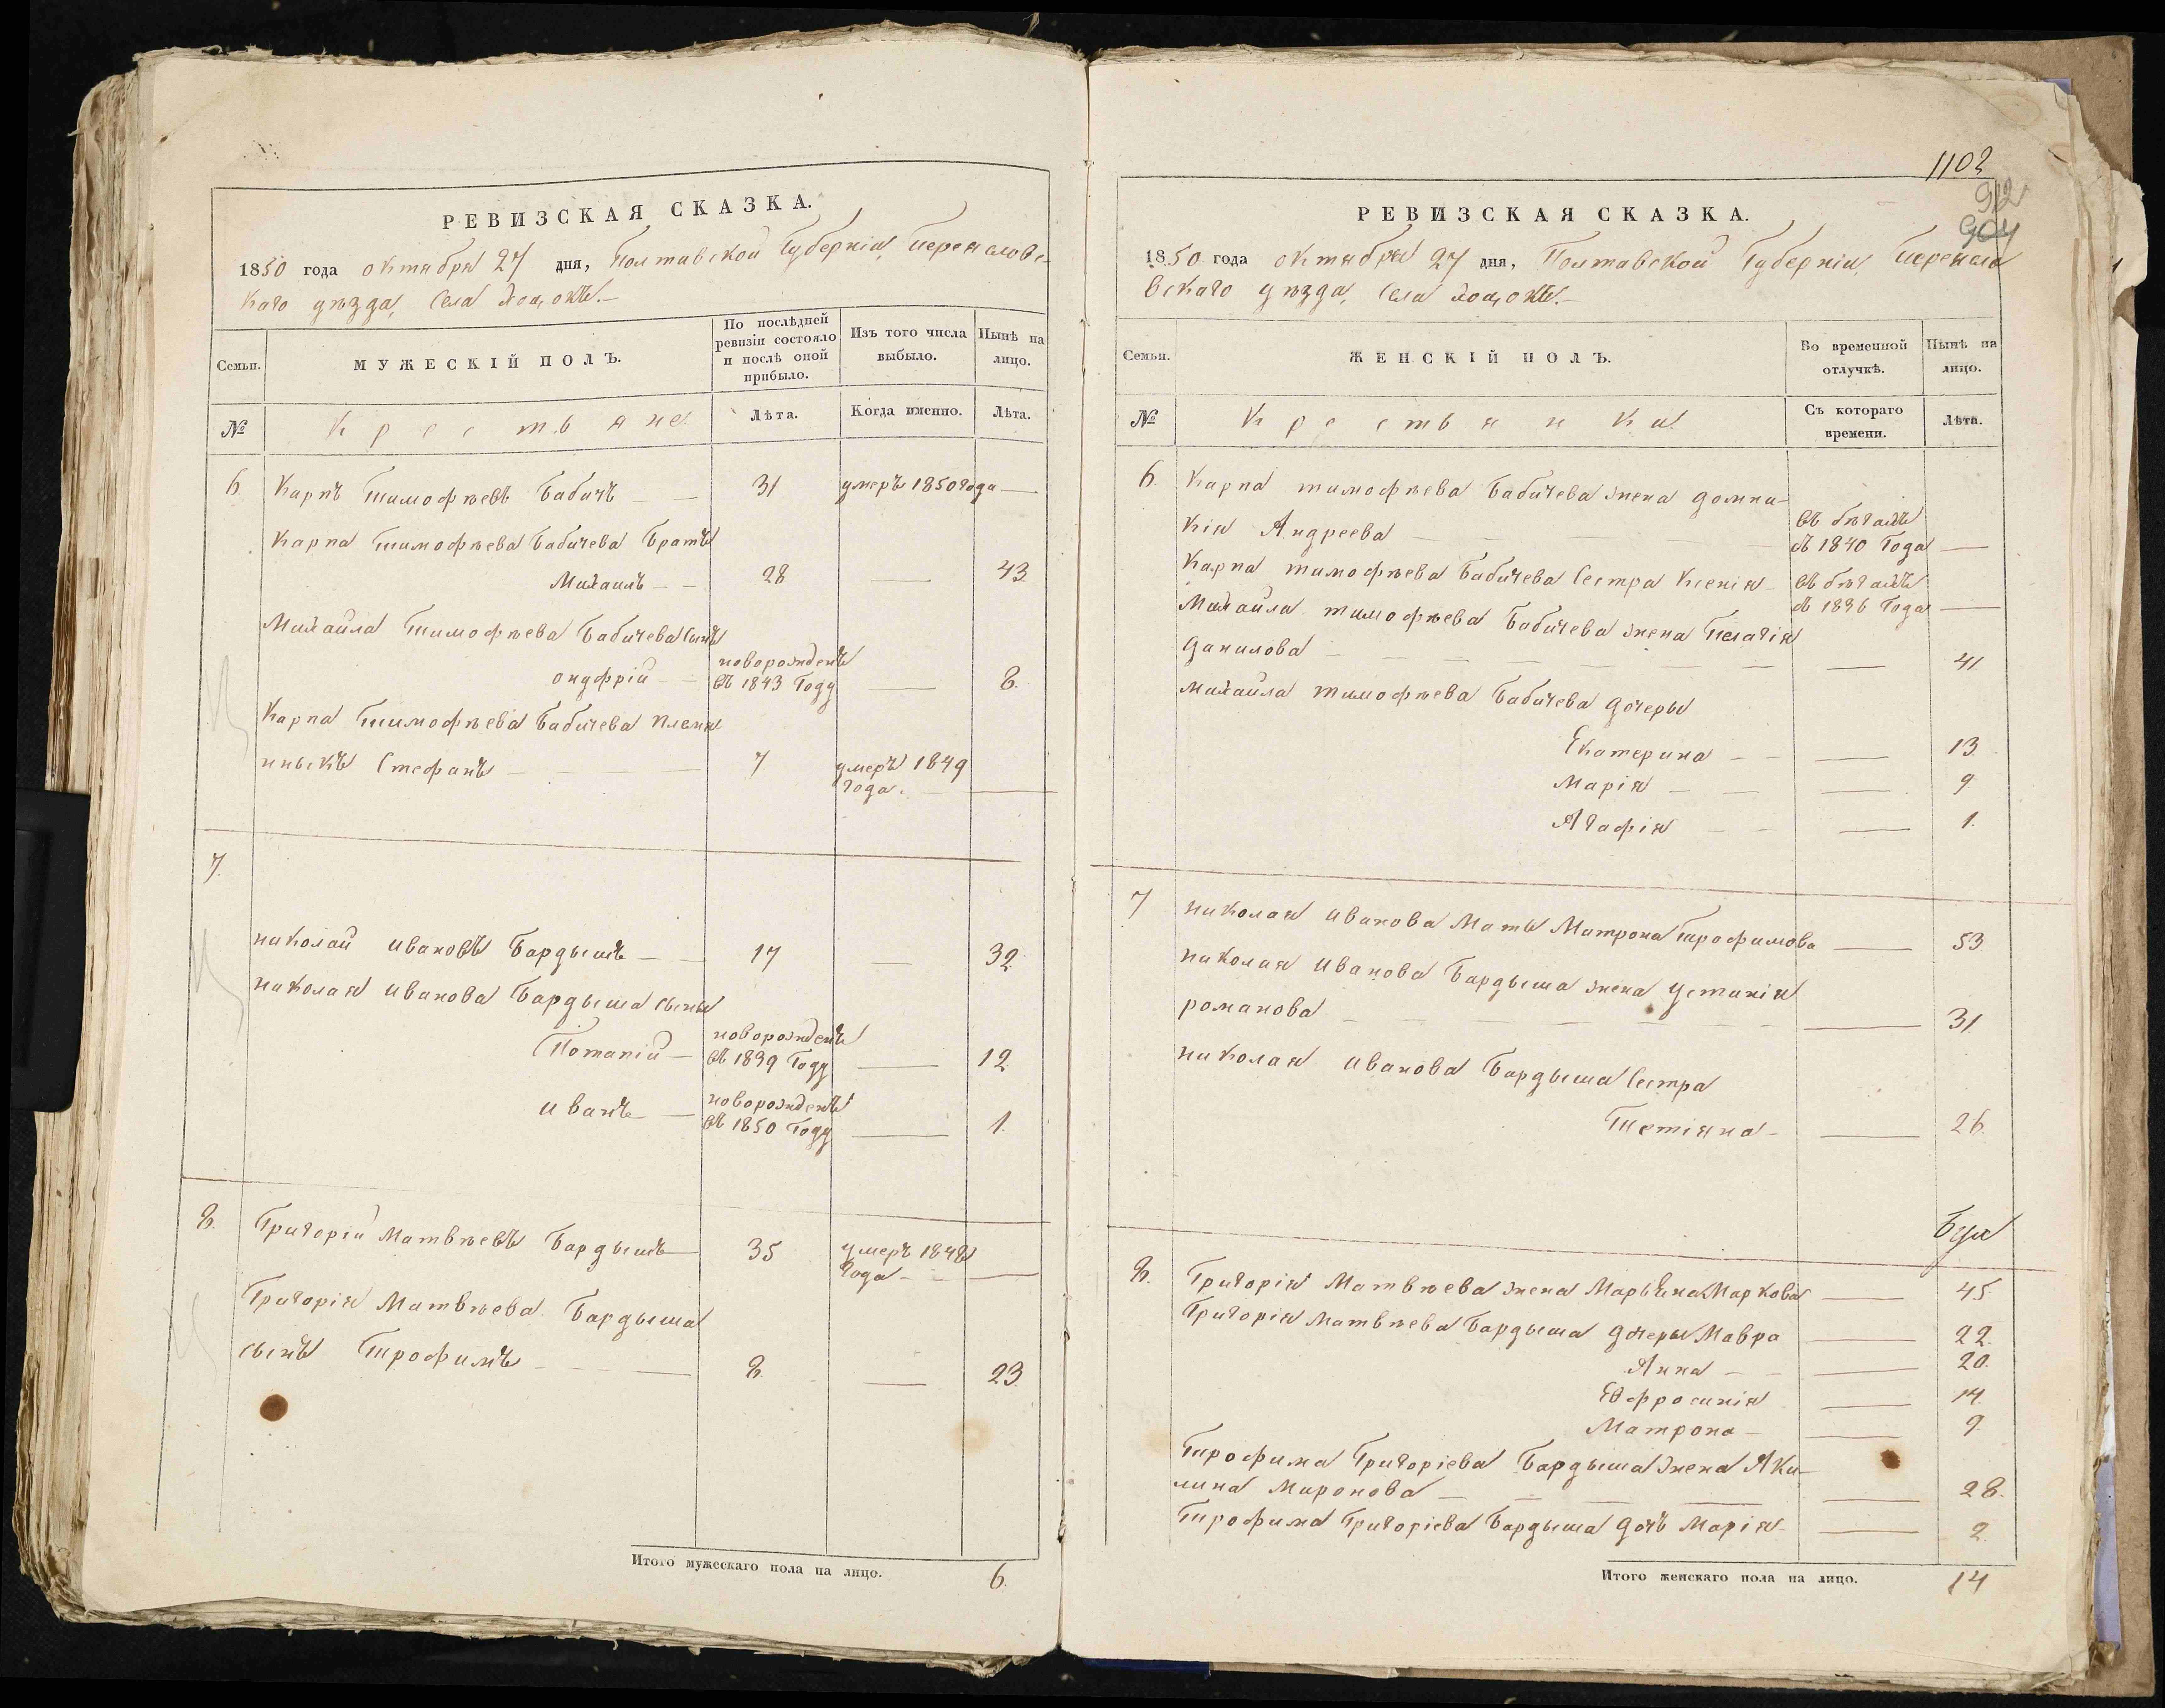 РЕВИЗСКАЯ СКАЗКА.
1850 года октября 27 дня, Полтавской Губерніи, Переяславс-
каго уѣзда, села Хоцокъ.
Семьи.
МУЖЕСКІЙ ПОЛЪ.
По послѣдней
ревизіи состояло
и послѣ оной
прибыло.
Изъ того числа
выбыло.
Нынѣ на
лицо.
№
Крестьяне
Лѣта.
Когда именно.
Лѣта.
6. Карпъ Тимофѣевъ Бабичъ 31 умеръ 1850 года
Карпа Тимофѣева Бабичева Братъ
Михаилъ 28 43
Михайла Тимофѣева Бабичева сынъ
Онуфрій новорожденъ въ 1843 Году 8.
Карпа Тимофѣева Бабичева племя-
нныкъ Стефанъ 7 умеръ 1849 года.
7.
Николай Ивановъ Бардышъ 17 32
Николая Иванова Бардыша сыны
Потапій новорожденъ въ 1839 Году 12
Иванъ новорожденъ въ 1850 Году 1.
8. Григорій Матвѣевъ Бардышъ 35 умеръ 1848 года
Григорія Матвѣева Бардыша
сынъ Трофимъ 8. 23
Итого мужескаго пола на лицо. 6.
1102
912
904
РЕВИЗСКАЯ СКАЗКА.
1850 года октября 27 дня, Полтавской Губерніи, Переясла
вскаго уѣзда, села Хоцокъ.
Семьи.
ЖЕНСКІЙ ПОЛЪ.
Во временной
отлучкѣ.
Нынѣ на
лицо.
№
Крестьянки
Съ котораго
времени.
Лѣта.
6. Карпа Тимофѣева Бабичева жена Домни-
кія Андреева въ бѣгахъ съ 1840 Года
Карпа Тимофѣева Бабичева сестра Ксенія въ бѣгахъ съ 1836 Года
Михайла Тимофѣева Бабичева жена Пелагія
Данилова 41
Михайла Тимофѣева Бабичева дочеры
Екатерина 13
Марія 9
Агафія 1.
7 Николая Иванова Мать Матрона Трофимова 53
Николая Иванова Бардыша жена Устинія
Романова 31
Николая Иванова Бардыша сестра
Тетіяна 26
8. Григорія Матвѣева жена Марьяна Маркова 45
Григорія Матвѣева Бардыша дочеры Мавра 22.
Анна 20.
Евфросинія 14
Матрона 9
Трофима Григоріева Бардыша жена Аки-
лина Миронова 28.
Трофима Григоріева Бардыша дочь Марія 2
Итого женскаго пола на лицо. 14